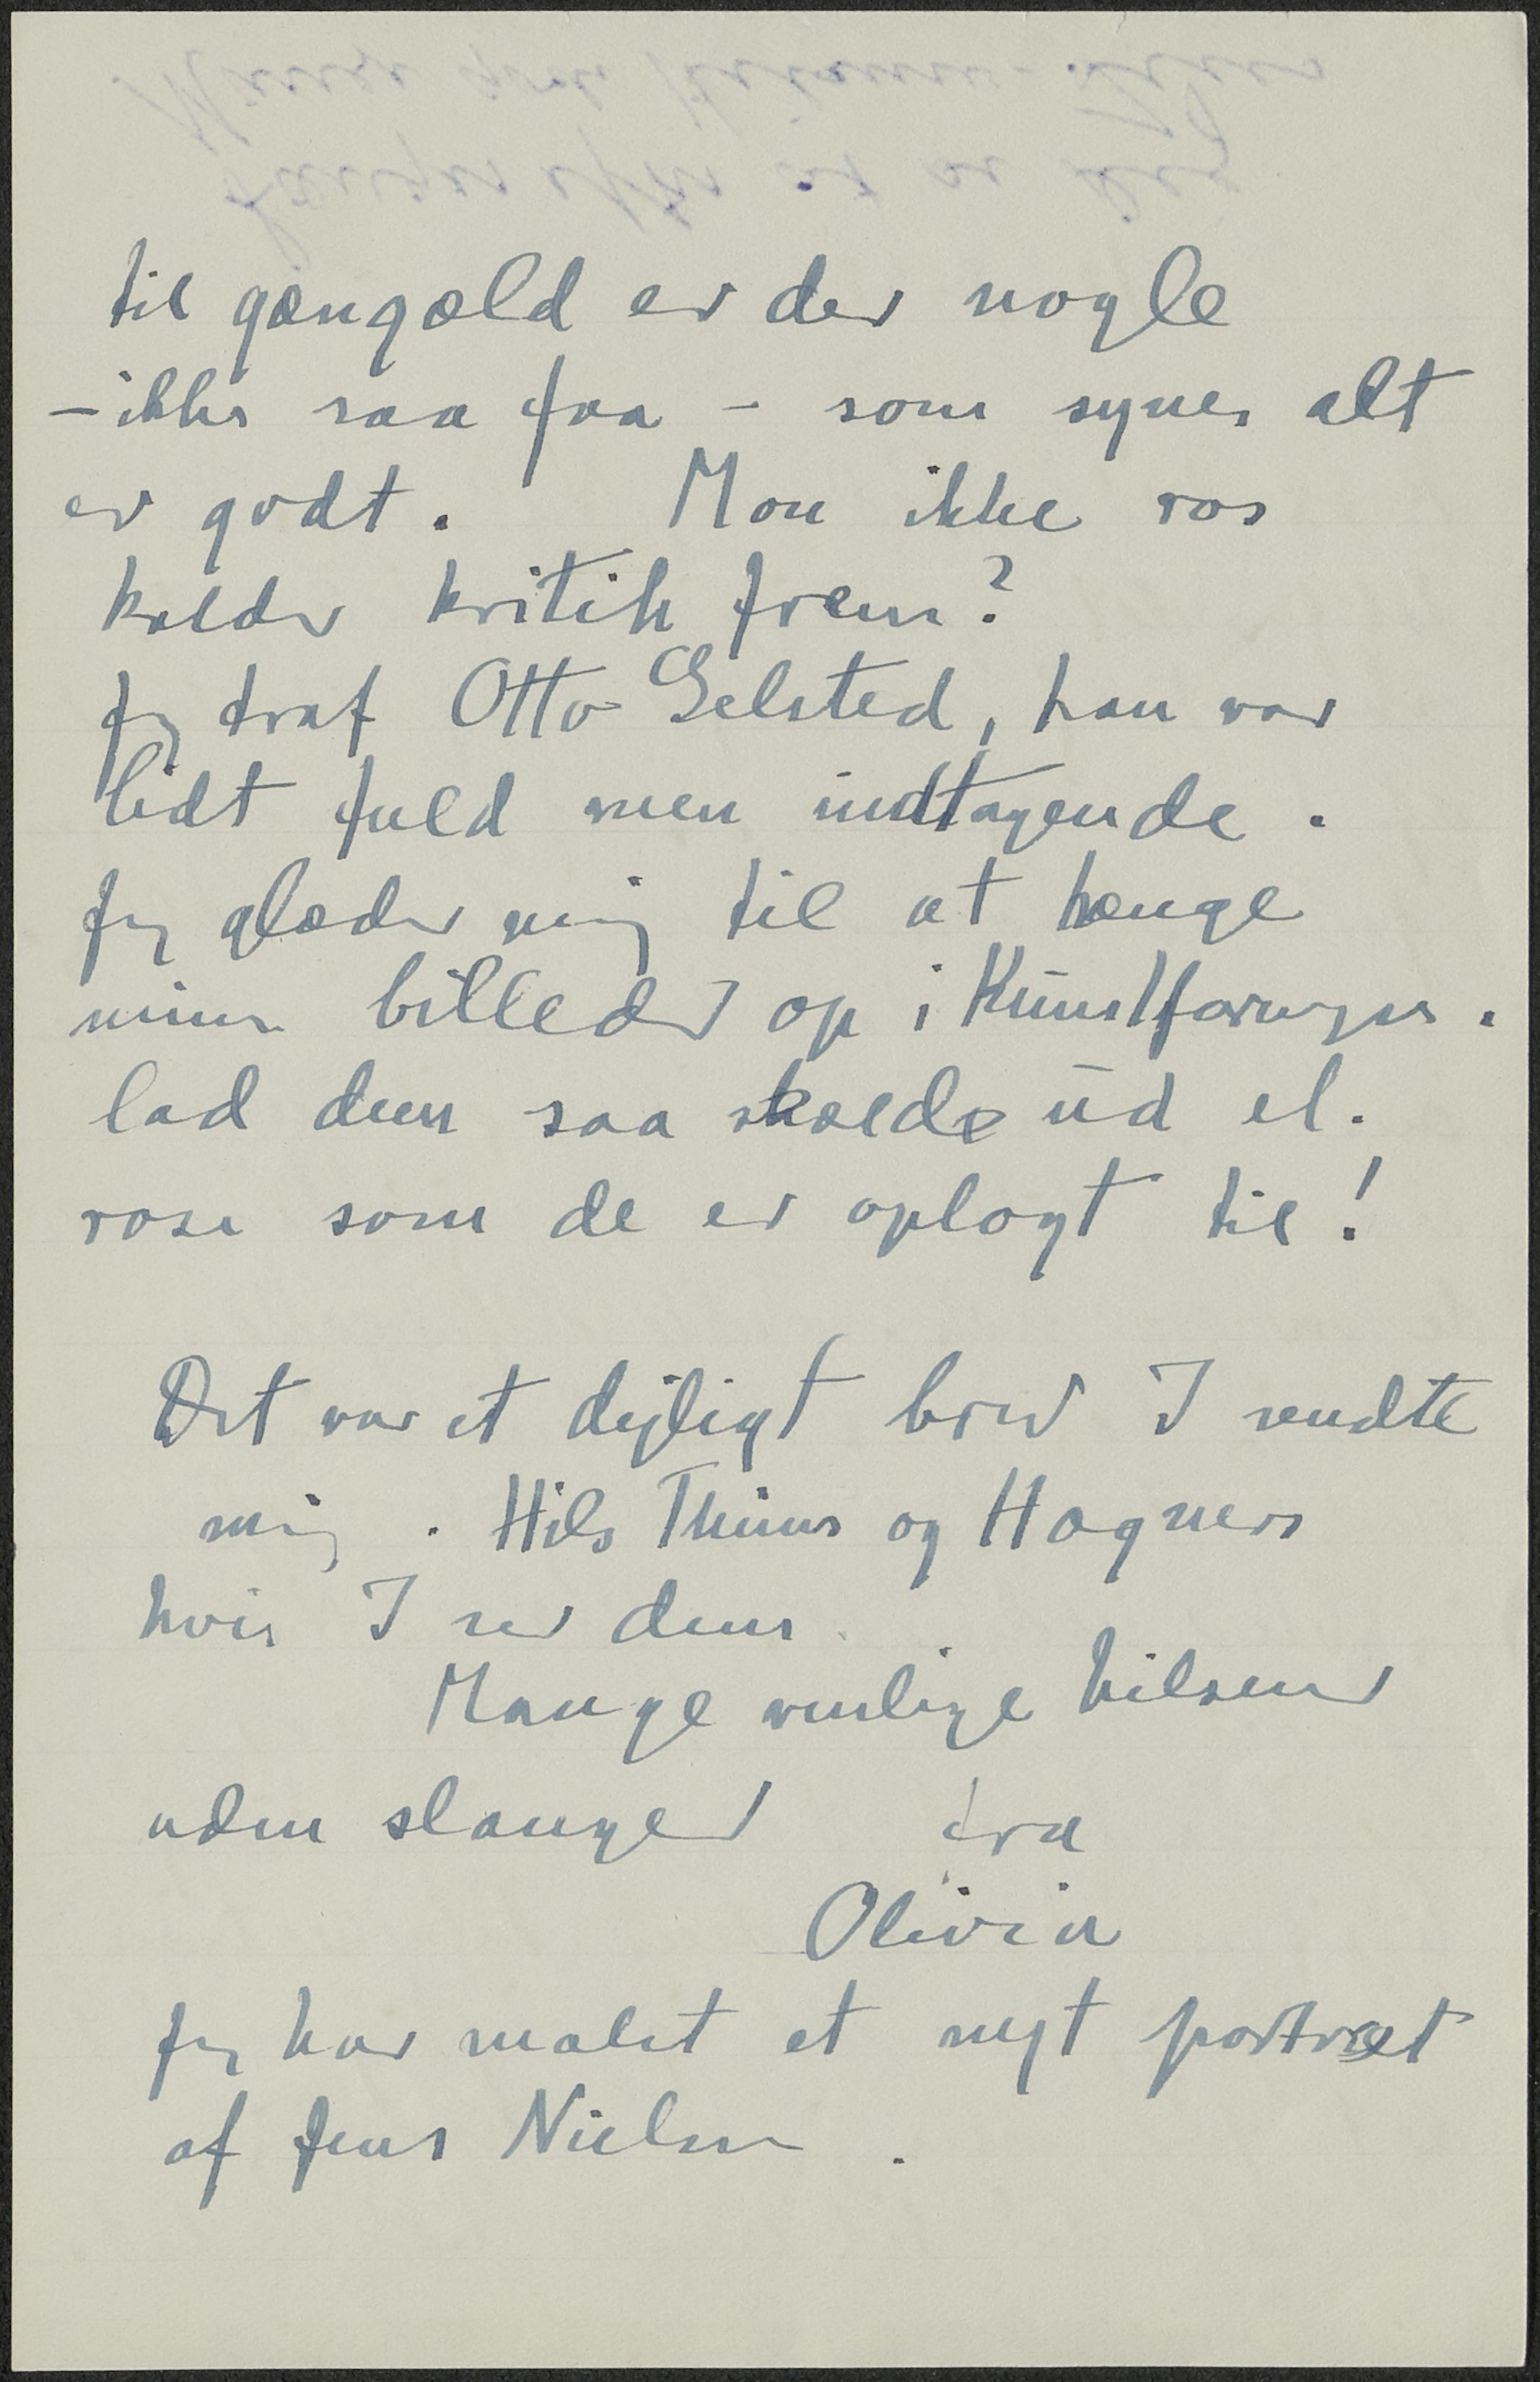 til gængæld er der nogle
– ikke saa faa – som synes alt
er godt. Mon ikke ros
kalder kritik frem?
Jeg traf Otto Gelsted, han var
lidt fuld men indtagende.
Jeg glæder mig til at hænge
mine billeder op i Kunstforengen.
lad dem saa skælde ud el.
rose som de er oplagt til!
Det var et dejligt brev I sendte
mig. Hils Thiims og Hagners
hvis I ser dem
Mange venlige hilsener
uden slanger fra
Olivia
Jeg har malet et nyt portræt
af Jens Nielsen.